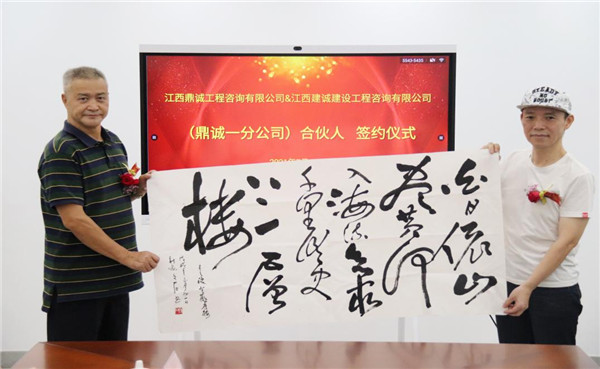 5943-5425
江西鼎诚工程咨询有限公司&江西建诚建设工程咨询有限公司
（鼎诚一分公司）合伙人 签约仪式
STEADY
白日依山
尽黄河
入海流欲穷
千里目更
上一层
楼